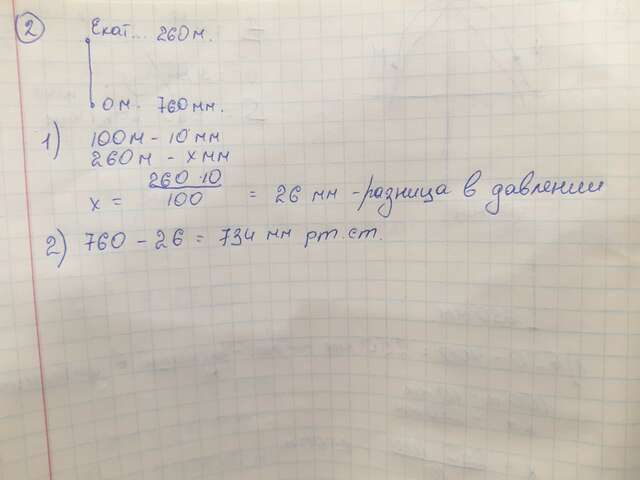 2 Екат... 260 м.
0 м. 760 мм.
1) 100 м - 10 мм
260 м - x мм
x = 260 · 10 / 100 = 26 мм - разница в давлении
2) 760 - 26 = 734 мм рт. ст.